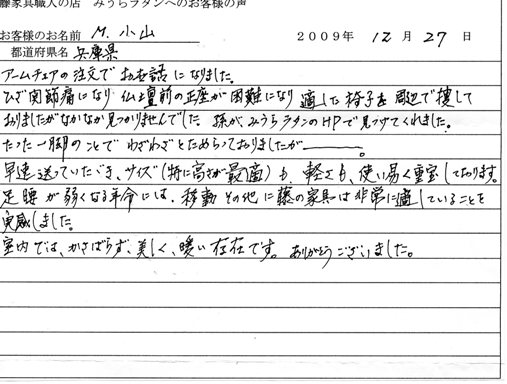 籐家具職人の店　みうらラタンへのお客様の声
お客様のお名前　M. 小山　2009年 12月 27日
都道府県名　兵庫県
アームチェアの注文で お世話になりました。
ひざ関節痛になり 仏壇前の正座が困難になり 適した椅子を周辺で捜して
おりましたがなかなか見つかりませんでした 孫がみうらラタンのHPで見つけてくれました。
たった一脚のことで わざわざとためらっておりましたが――。
早速送っていただき、サイズ(特に高さが最適)も、軽さも、使い易く重宝しております。
足腰が弱くなる年令には、移動その他に籐の家具は非常に適していることを
実感しました。
室内では、かさばらず、美しく、暖い存在です。ありがとうございました。